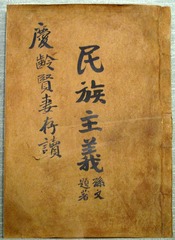 民族主義
孫文
題署
慶齡賢妻存讀